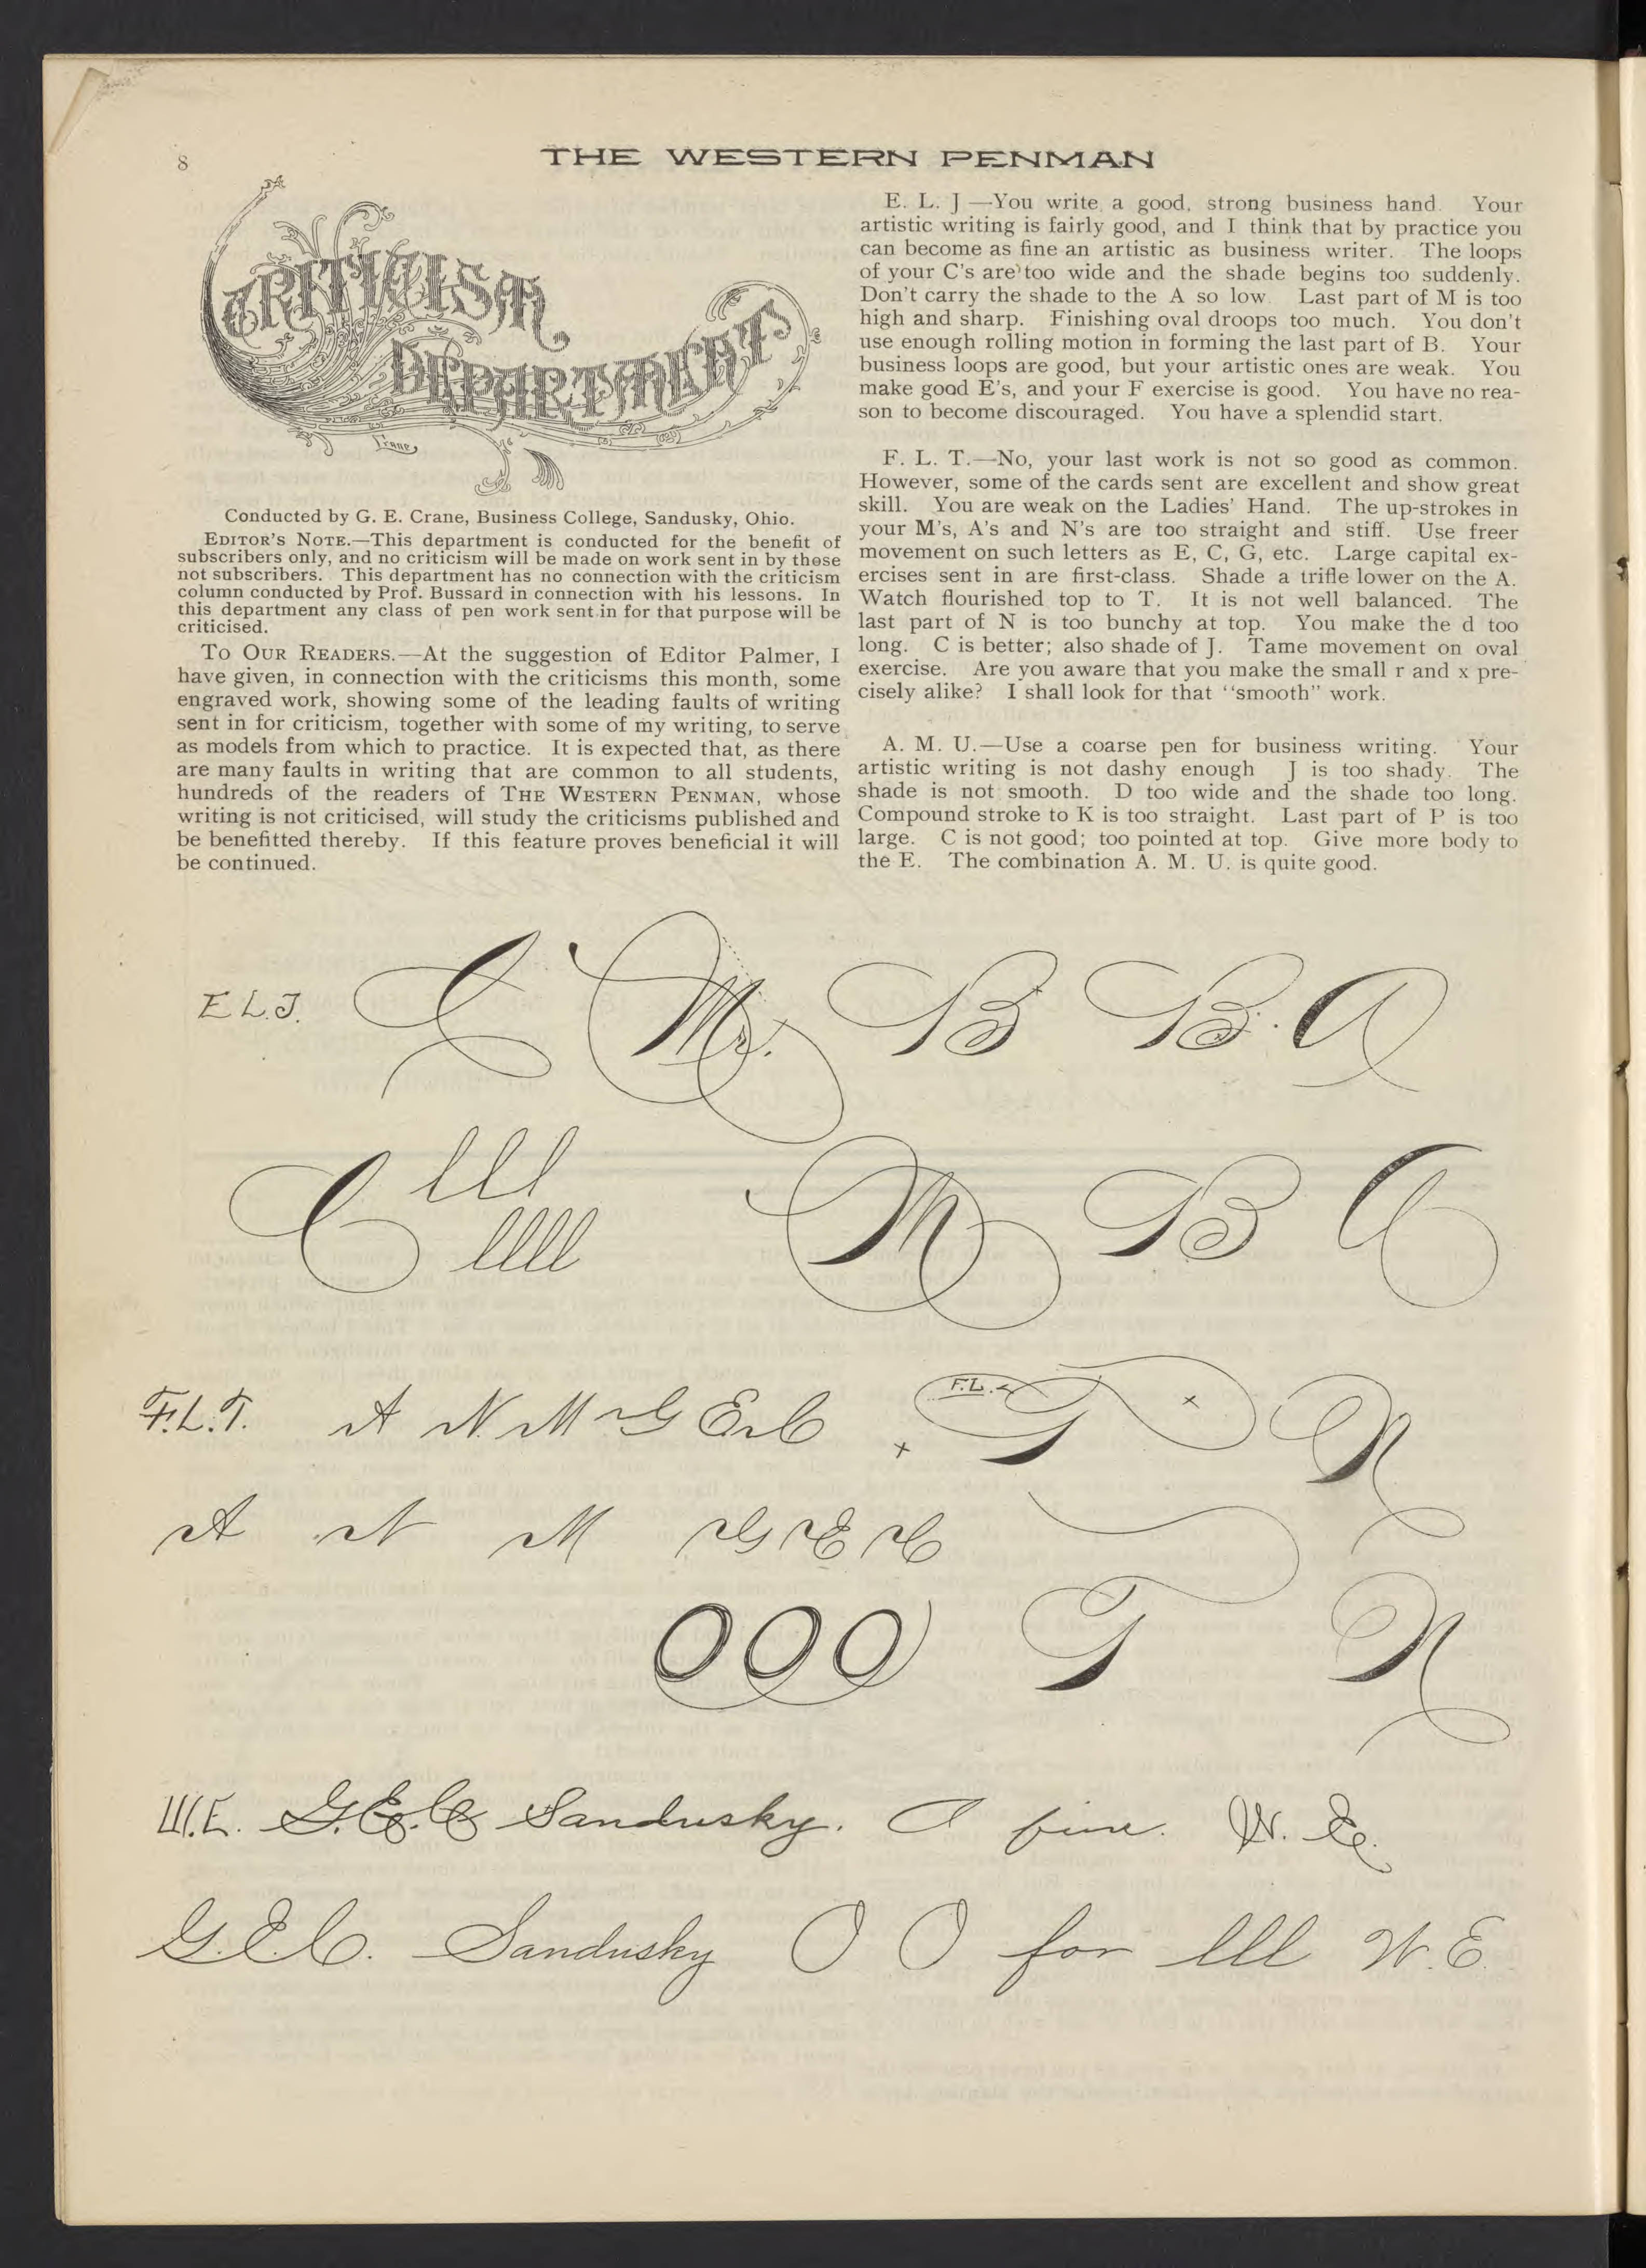 8
THE WESTERN PENMAN
CRITICISM
DEPARTMENT
Crane
Conducted by G. E. Crane, Business College, Sandusky, Ohio.
EDITOR'S NOTE.—This department is conducted for the benefit of
subscribers only, and no criticism will be made on work sent in by those
not subscribers. This department has no connection with the criticism
column conducted by Prof. Bussard in connection with his lessons. In
this department any class of pen work sent in for that purpose will be
criticised.
TO OUR READERS.—At the suggestion of Editor Palmer, I
have given, in connection with the criticisms this month, some
engraved work, showing some of the leading faults of writing
sent in for criticism, together with some of my writing, to serve
as models from which to practice. It is expected that, as there
are many faults in writing that are common to all students,
hundreds of the readers of THE WESTERN PENMAN, whose
writing is not criticised, will study the criticisms published and
be benefitted thereby. If this feature proves beneficial it will
be continued.
E. L. J —You write a good, strong business hand. Your
artistic writing is fairly good, and I think that by practice you
can become as fine an artistic as business writer. The loops
of your C's are too wide and the shade begins too suddenly.
Don't carry the shade to the A so low Last part of M is too
high and sharp. Finishing oval droops too much. You don't
use enough rolling motion in forming the last part of B. Your
business loops are good, but your artistic ones are weak. You
make good E's, and your F exercise is good. You have no rea-
son to become discouraged. You have a splendid start.
F. L. T.—No, your last work is not so good as common.
However, some of the cards sent are excellent and show great
skill. You are weak on the Ladies' Hand. The up-strokes in
your M's, A's and N's are too straight and stiff. Use freer
movement on such letters as E, C, G, etc. Large capital ex-
ercises sent in are first-class. Shade a trifle lower on the A.
Watch flourished top to T. It is not well balanced. The
last part of N is too bunchy at top. You make the d too
long. C is better; also shade of J. Tame movement on oval
exercise. Are you aware that you make the small r and x pre-
cisely alike? I shall look for that "smooth" work.
A. M. U.—Use a coarse pen for business writing. Your
artistic writing is not dashy enough J is too shady. The
shade is not smooth. D too wide and the shade too long.
Compound stroke to K is too straight. Last part of P is too
large. C is not good; too pointed at top. Give more body to
the E. The combination A. M. U. is quite good.
E L.J. C Mr. B B. A
C lll llll M B A
F.L.T. A N M G E C F.L. T N
A N M G E C
O O O T N
W.E. G.E.C. Sandusky. O fine. W. E.
G.E.C. Sandusky O O for lll W. E.